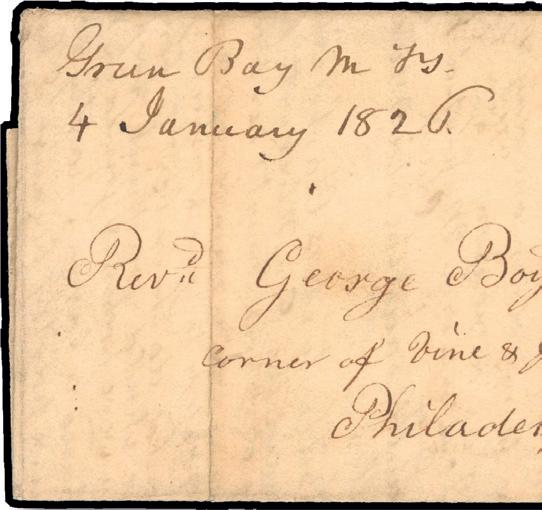 Green Bay M Ty.
4 January 1826.
Revd George Boy
corner of Vine &
Philade